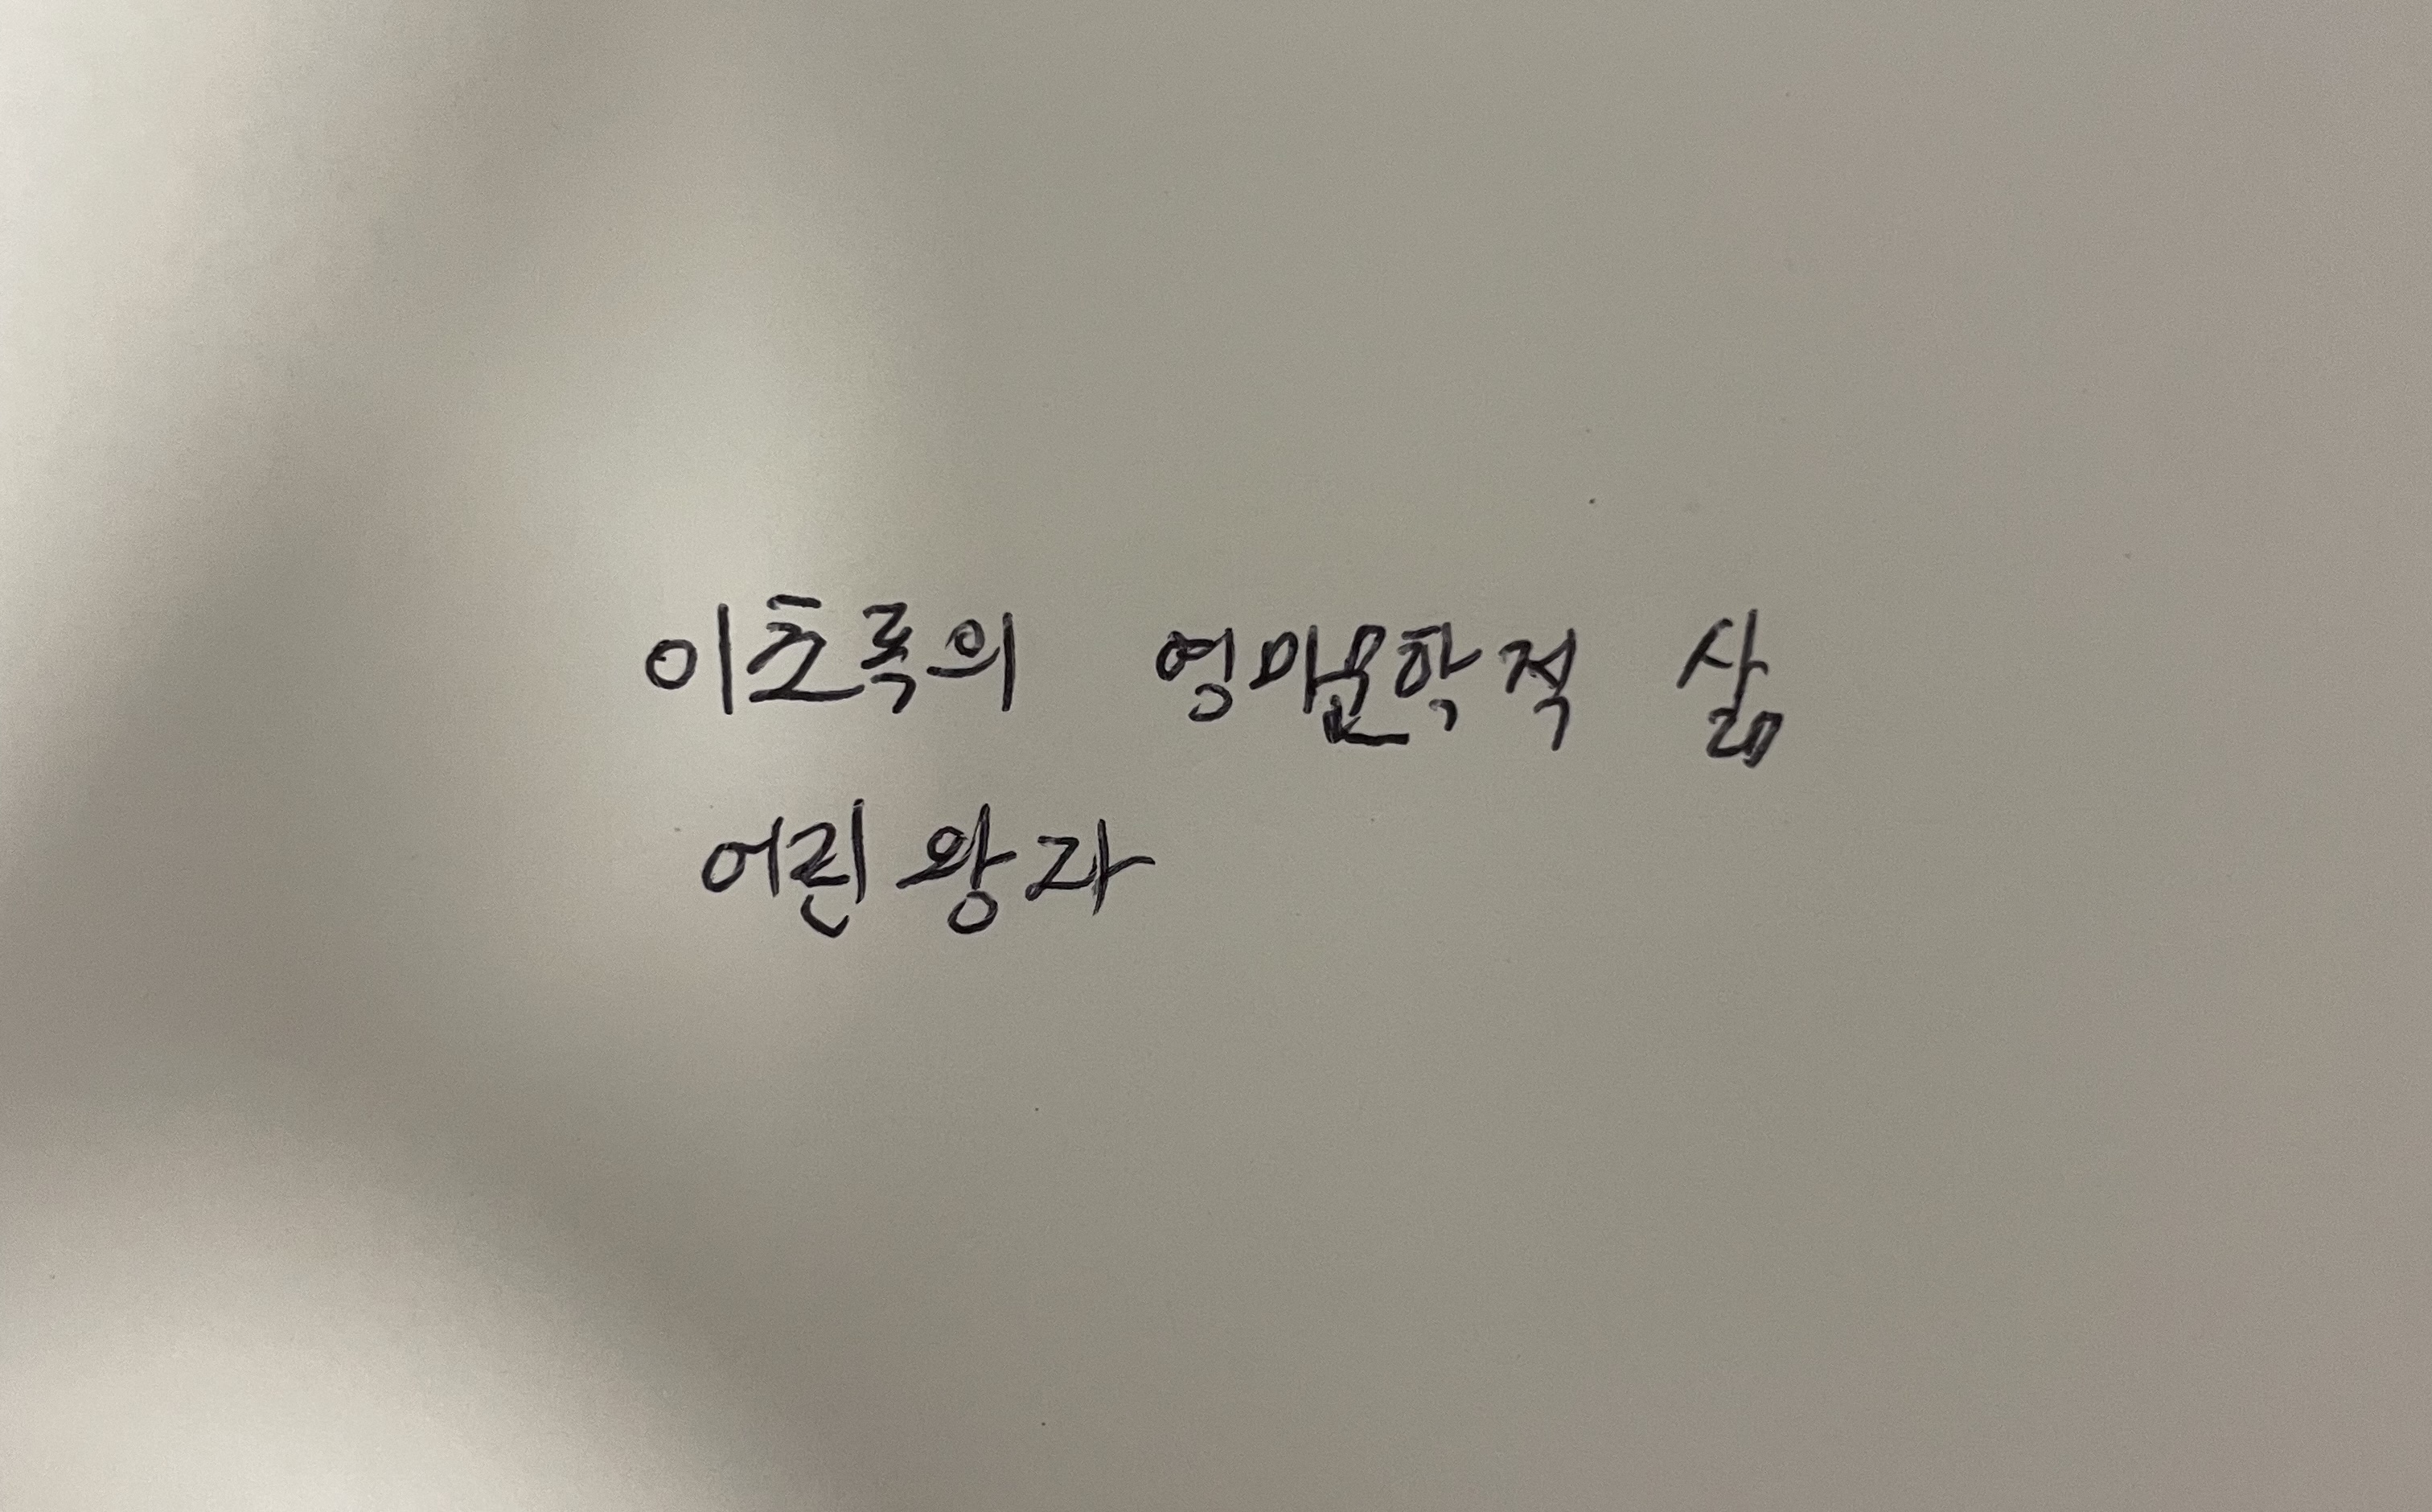 이초록의 영미문학적 삶
어린왕자